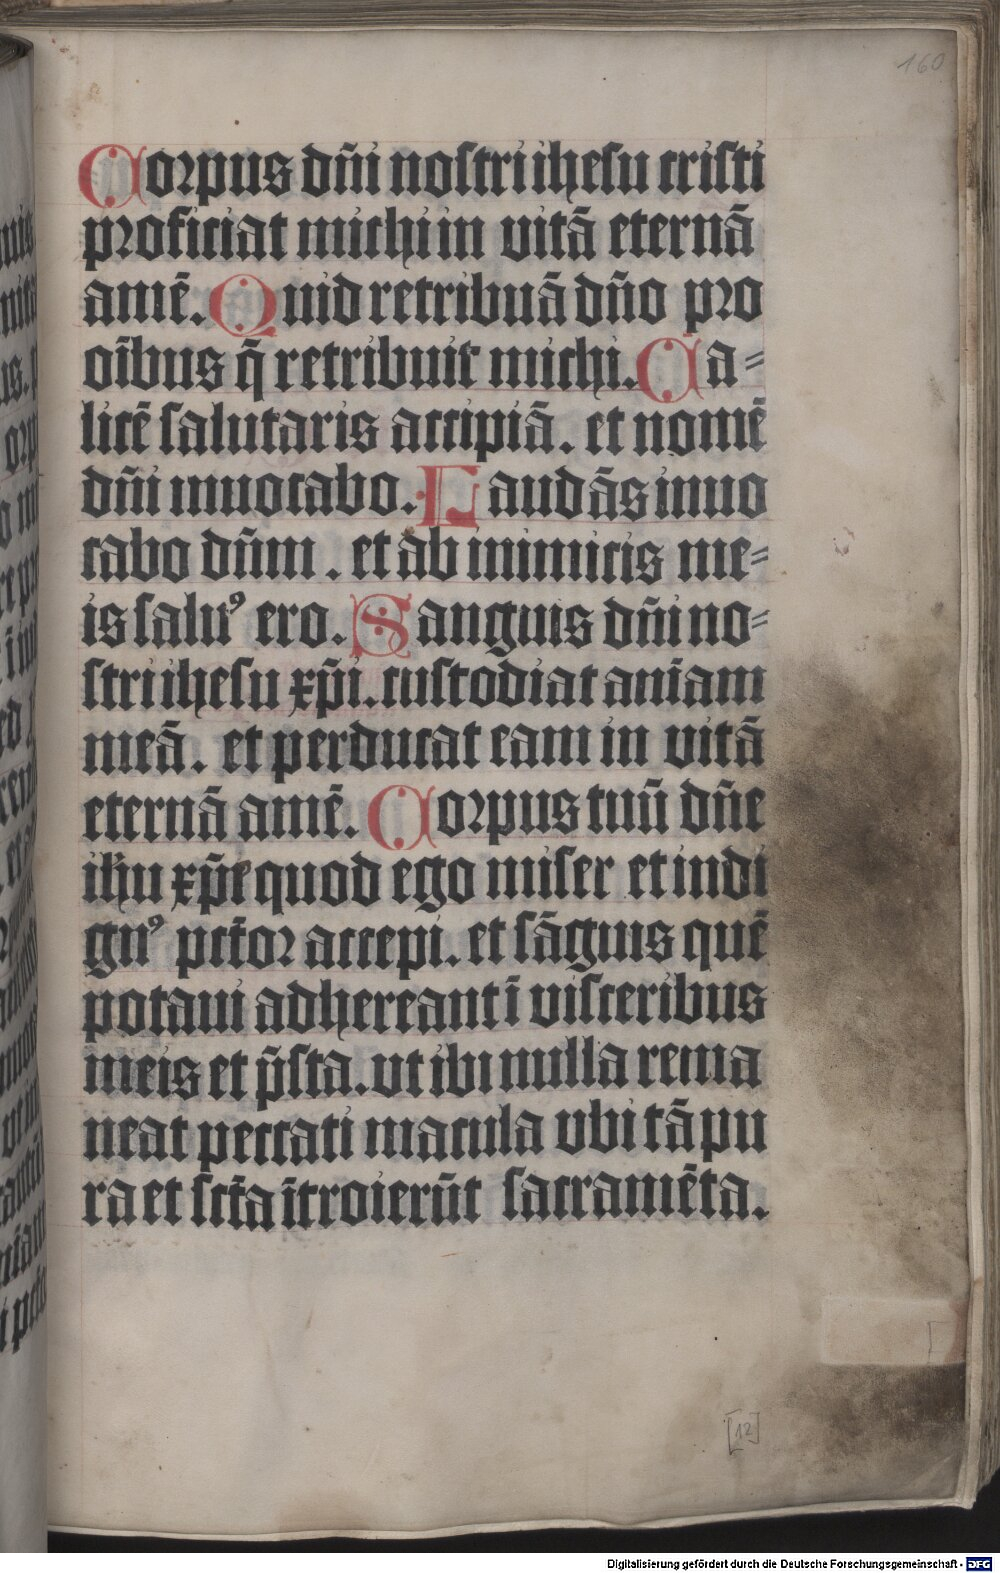 160
Corpus dn̄i nostri ihesu cristi
proficiat michi in vitā eternā
amē. Quid retribuā dn̄o pro
oībus q̄ retribuit michi. Ca⸗
licē salutaris accipiā. et nomē
dn̄i inuocabo. Laudās inuo
cabo dn̄m. et ab inimicis me⸗
is saluꝰ ero. Sanguis dn̄i no⸗
stri ihesu xp̄i. custodiat anīam
meā. et perducat eam in vitā
eternā amē. Corpus tuū dn̄e
ih̄u xp̄e quod ego miser et indi
gnꝰ pctōr accepi. et sāguis quē
potaui adhereant ī visceribus
meis et p̄sta. vt ibi nulla rema
neat peccati macula vbi tā pu
ra et sctā ītroierūt sacramēta.
[12]
Digitalisierung gefördert durch die Deutsche Forschungsgemeinschaft - DFG